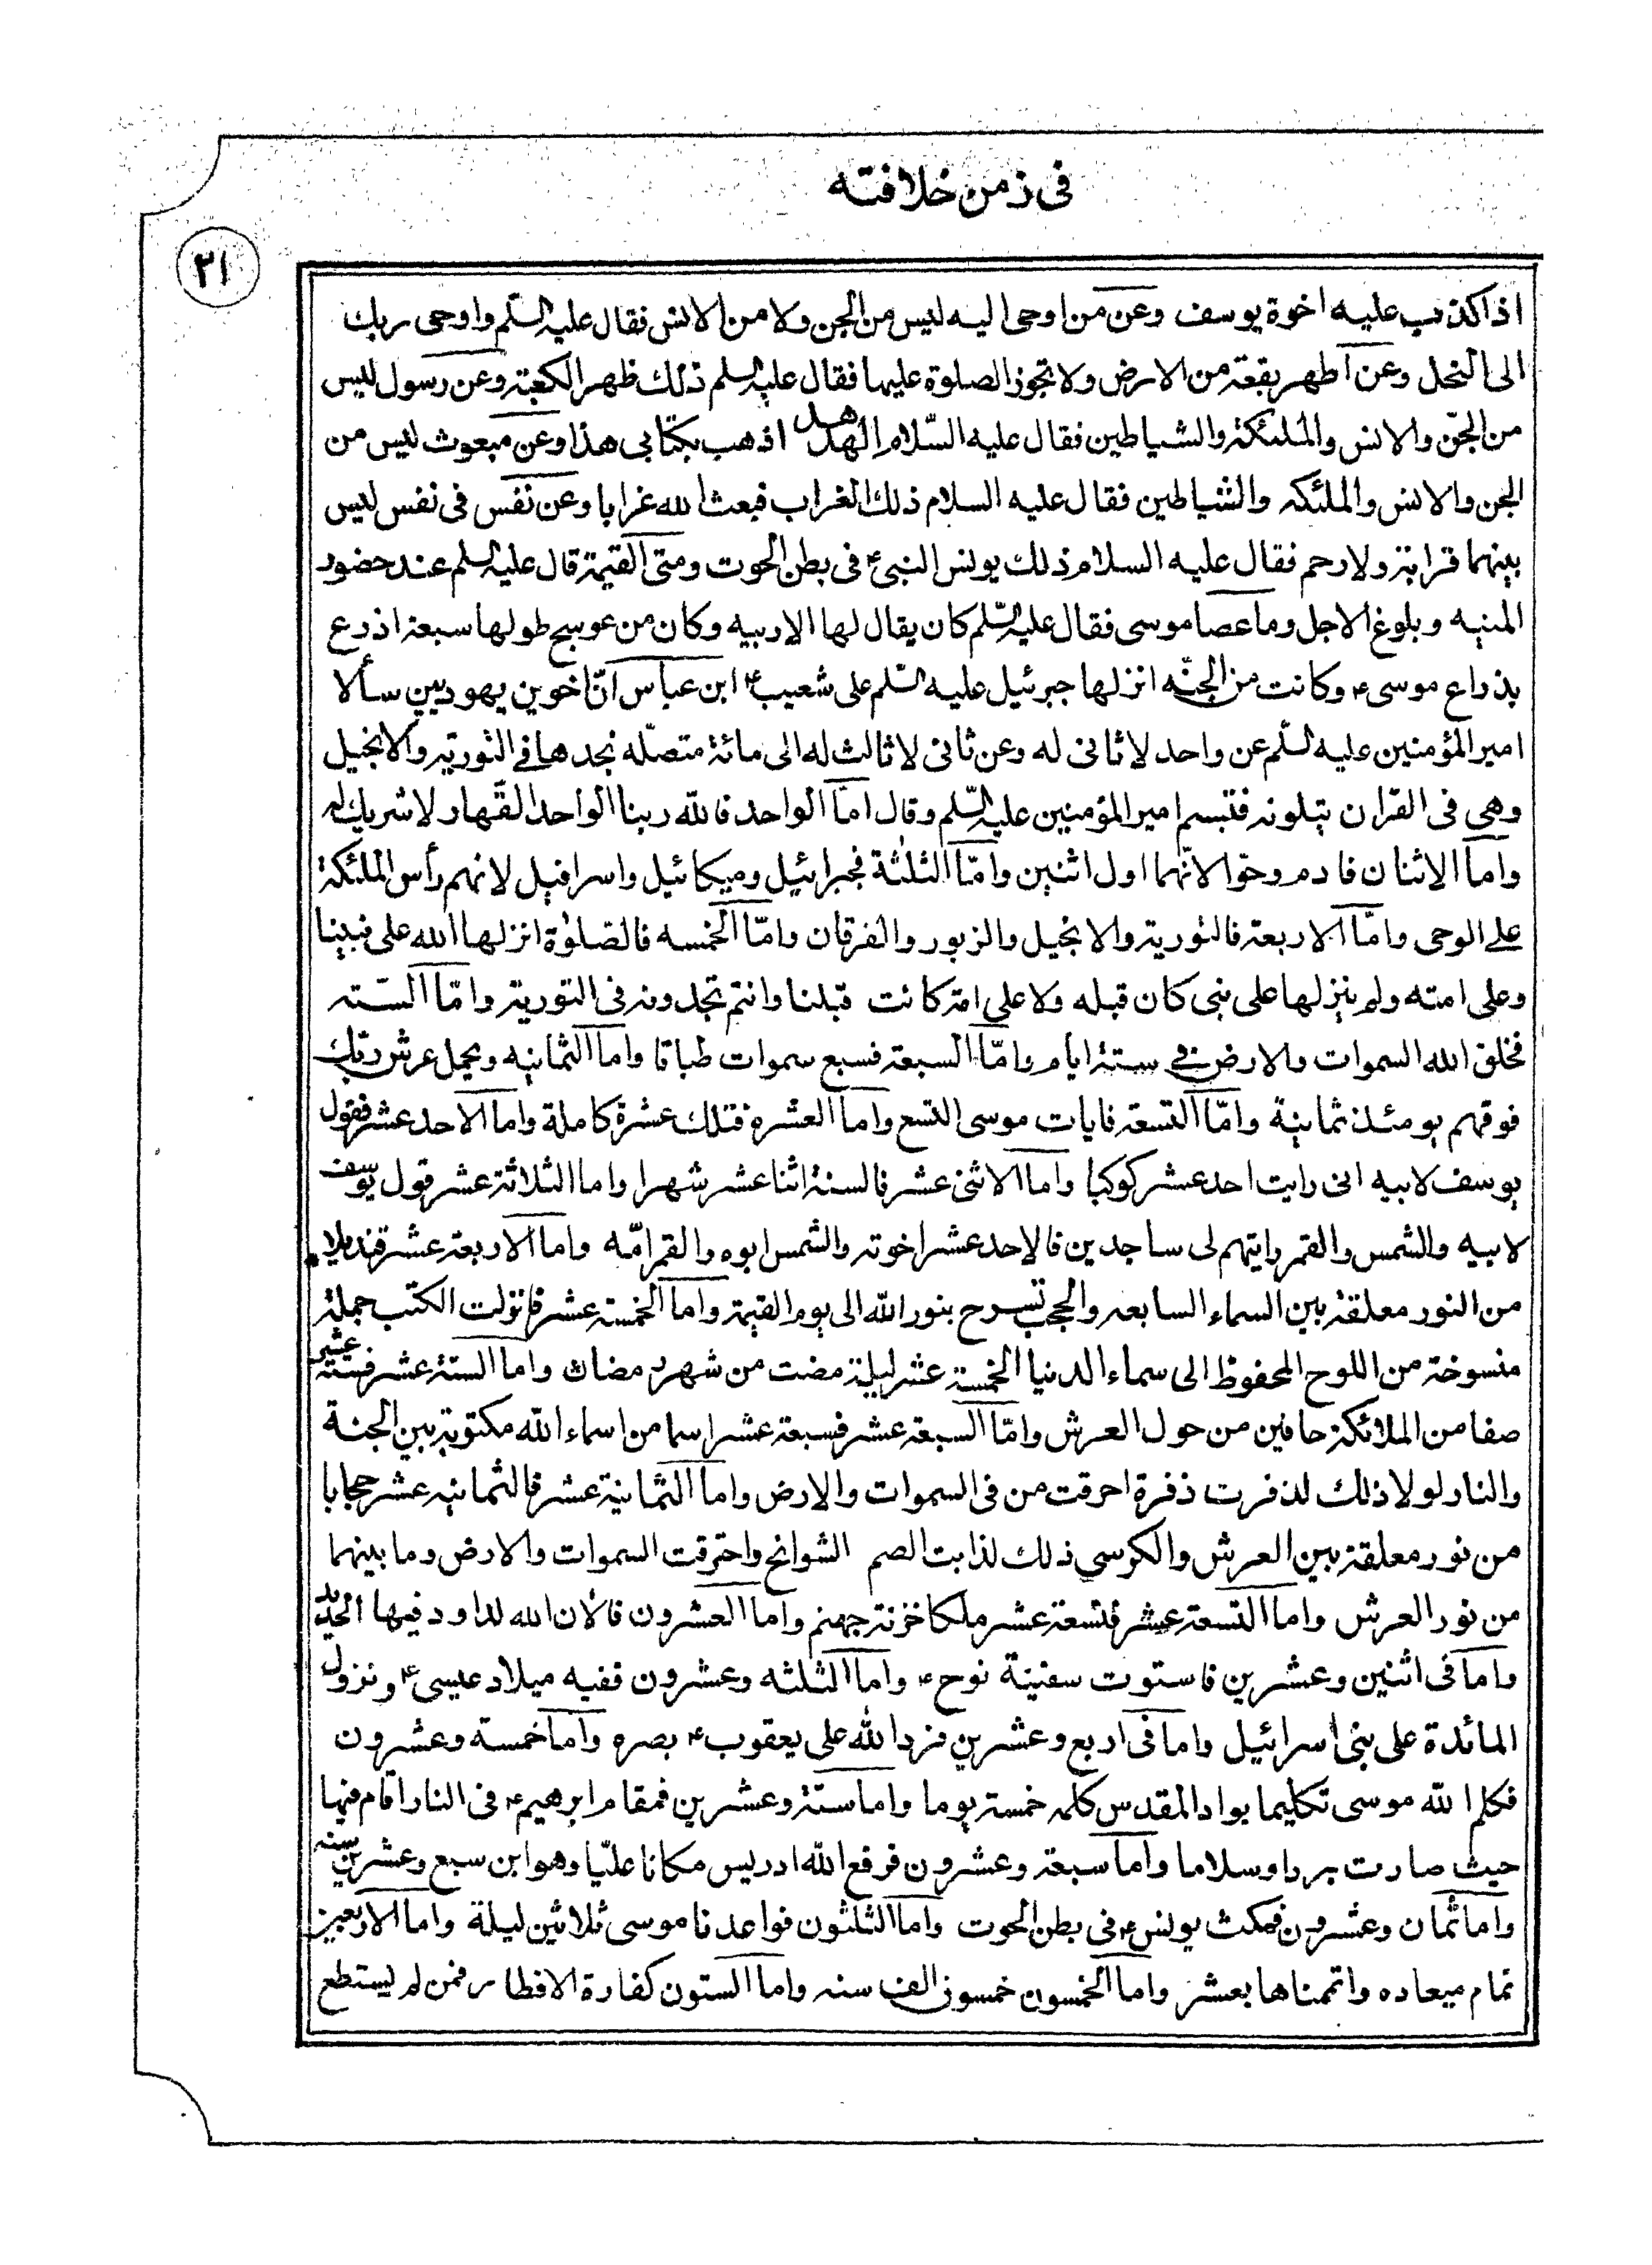 فى زمن خلافته
٢١
اذا كذب عليه اخوة يوسف وعن من اوحى اليه ليس من الجن ولا من الانس فقال عليه السلّم واوحى ربك
الى النحل وعن اطهر بقعة من الارض ولا تجوز الصلوة عليها فقال عليه السلم ذلك ظهر الكعبة وعن رسول ليس
من الجنّ والانس والملئكة والشياطين فقال عليه السّلام الهدهد اذهب بكتابى هذا وعن مبعوث ليس من
الجن والانس والملئكه والشياطين فقال عليه السلام ذلك الغراب فبعث الله غرابا وعن نفس فى نفس ليس
بينهما قرابة ولا رحم فقال عليه السلام ذلك يونس النبى ع فى بطن الحوت ومتى القيمة قال عليه السلم عند حضور
المنيه وبلوغ الاجل وما عصا موسى فقال عليه السّلم كان يقال لها الاربيه وكان من عوسج طولها سبعة اذرع
بذراع موسى ع وكانت من الجنّه انزلها جبرئيل عليه السّلم على شعيب ع ابن عباس انّ اخوين يهوديين سألا
امير المؤمنين عليه السلّم عن واحد لا ثانى له وعن ثانى لا ثالث له الى مائة متصّله نجدها فى التورية والانجيل
وهى فى القران يتلونه فتبسم امير المؤمنين عليه السّلم وقال امّا الواحد فالله ربنا الواحد القهار لا شريك له
واما الاثنان فادم وحوّا لانّهما اول اثنين وامّا الثلثة فجبرائيل وميكائيل واسرافيل لانهم رأس الملئكة
على الوحى وامّا الاربعة فالتورية والانجيل والزبور والفرقان وامّا الخمسه فالصلوة انزلها الله على نبينا
وعلى امته ولم ينزلها على نبى كان قبله ولا على امة كانت قبلنا وانتم تجدونه فى التورية وامّا الستّه
فخلق الله السموات والارض فى ستة ايام وامّا السبعة فسبع سموات طباقا واما الثمانيه ويحمل عرش ربّك
فوقهم يومئذ ثمانية وامّا التسعة فايات موسى التسع واما العشره فتلك عشرة كاملة واما الاحد عشر فقول
يوسف لابيه انى رايت احد عشر كوكبا واما الاثنى عشر فالسنة اثنا عشر شهرا واما الثلاثة عشر قول يوسف
لابيه والشمس والقمر رايتهم لى ساجدين فالاحد عشر اخوته والشمس ابوه والقمر امّه واما الاربعة عشر قنديلا
من النور معلقة بين السماء السابعه والحجب تسرح بنور الله الى يوم القيمة واما الخمسة عشر فانزلت الكتب جملة
منسوخة من اللوح المحفوظ الى سماء الدنيا الخمسة عشر ليلة مضت من شهر رمضان واما الستة عشر فستة عشر
صفا من الملائكة حافين من حول العرش وامّا السبعة عشر فسبعة عشر اسما من اسماء الله مكتوبة بين الجنة
والنار لولا ذلك لذفرت ذفرة احرقت من فى السموات والارض واما الثمانية عشر فالثمانيه عشر حجابا
من نور معلقة بين العرش والكرسي ذلك لذابت الصم الشوانح واحترقت السموات والارض وما بينهما
من نور العرش واما التسعة عشر فتسعة عشر ملكا خزنة جهنم واما العشرون فالان الله لداود فيها الحديد
واما فى اثنين وعشرين فاستوت سفينة نوح ع واما الثلثه وعشرون ففيه ميلاد عيسى ع ونزول
المائدة على بنى اسرائيل واما فى اربع وعشرين فرد الله على يعقوب ع بصره واما خمسة وعشرون
فكلم الله موسى تكليما بواد المقدس كلمه خمسة يوما واما ستة وعشرين فمقام ابرهيم ع فى النار اقام فيها
حيث صارت بردا وسلاما واما سبعة وعشرون فرفع الله ادريس مكانا عليّا وهو ابن سبع وعشرين سنه
واما ثمان وعشرون فمكث يونس ع فى بطن الحوت واما الثلثون فواعدنا موسى ثلاثين ليلة واما الاربعين
تمام ميعاده واتممناها بعشر واما الخمسون خمسون الف سنه واما الستون كفارة الافطار فمن لم يستطع